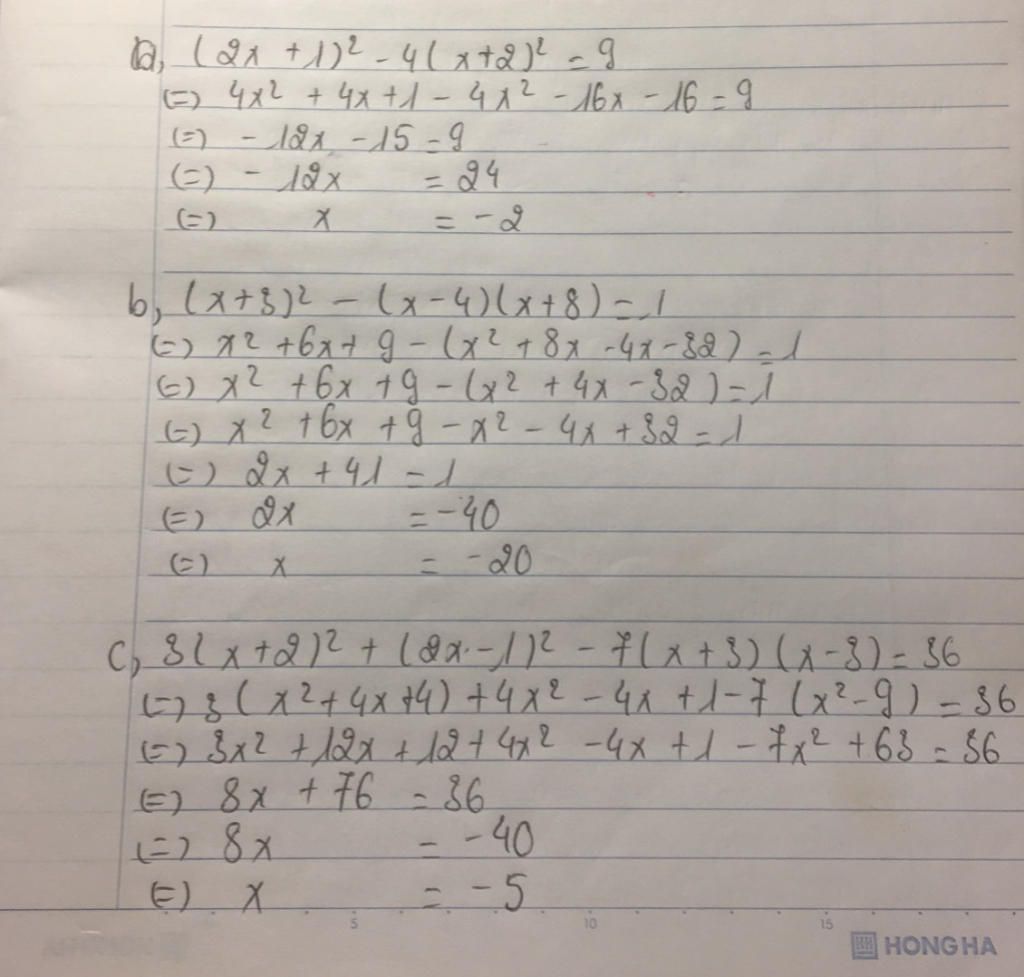 a, (2x + 1)² - 4(x+2)² = 9
(=) 4x² + 4x + 1 - 4x² - 16x - 16 = 9
(=) - 12x - 15 = 9
(=) - 12x = 24
(=) x = -2
b, (x+3)² - (x-4)(x+8) = 1
(=) x² + 6x + 9 - (x² + 8x - 4x - 32) = 1
(=) x² + 6x + 9 - (x² + 4x - 32) = 1
(=) x² + 6x + 9 - x² - 4x + 32 = 1
(=) 2x + 41 = 1
(=) 2x = -40
(=) x = -20
c, 3(x+2)² + (2x - 1)² - 7(x+3)(x-3) = 36
(=) 3(x² + 4x + 4) + 4x² - 4x + 1 - 7(x² - 9) = 36
(=) 3x² + 12x + 12 + 4x² - 4x + 1 - 7x² + 63 = 36
(=) 8x + 76 = 36
(=) 8x = -40
(=) x = -5
5 10 15
HONG HA